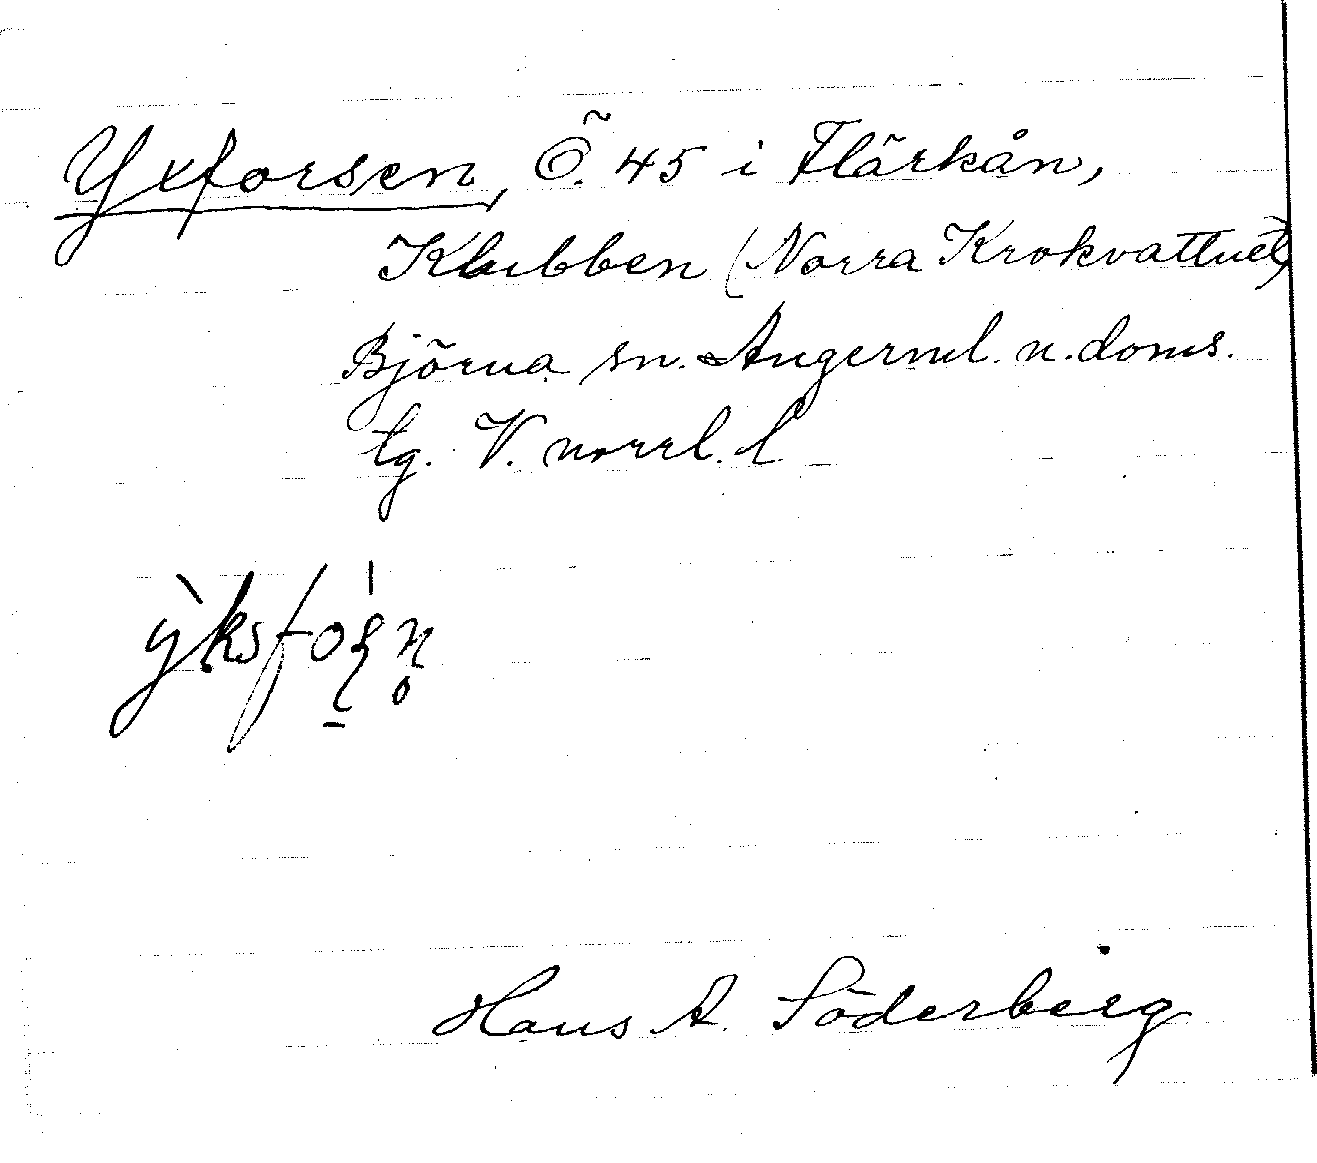 Yxforsen, Ö. 45 i Flärkån,
Klubben (Norra Krokvattnet)
Björna sn. Ångerml. n. doms.
tg. V. norrl. l
Hans A. Söderberg